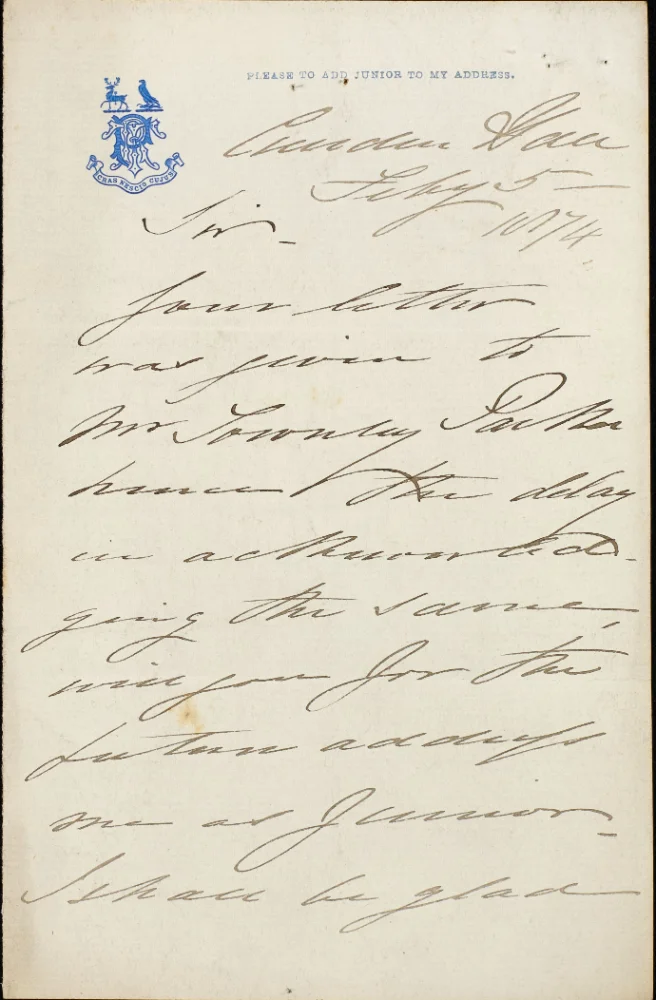 PLEASE TO ADD JUNIOR TO MY ADDRESS.
CRAS NESCIO CUJUS
Cuerden Hall
Feby 5 –
1874
Sir –
Your letter
was given to
Mr Townley Parker
hence the delay
in acknowled-
ging the same,
will you for the
future address
me as Junior –
I shall be glad